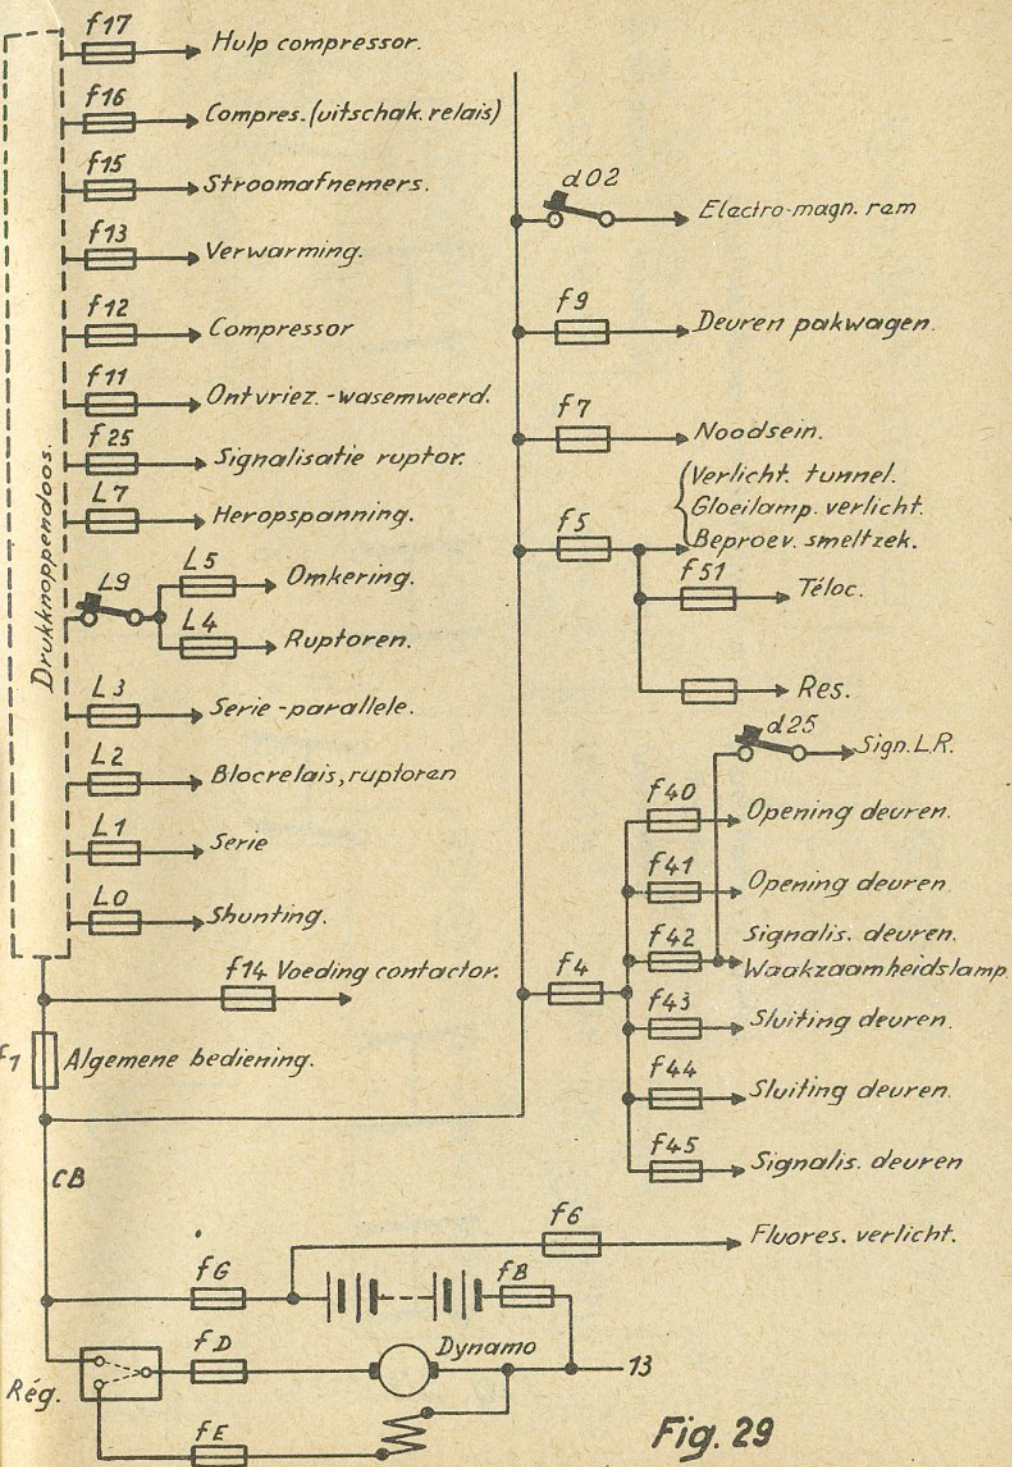 f17
Hulp compressor.
f16
Compres. (uitschak. relais)
f15
Stroomafnemers.
f13
Verwarming.
f12
Compressor
f11
Ontvriez. -wasemweerd.
f25
Signalisatie ruptor.
L7
Heropspanning.
L9
L5
Omkering.
L4
Ruptoren.
L3
Serie -parallele.
L2
Blocrelais, ruptoren
L1
Serie
L0
Shunting.
Drukknoppendoos.
f14 Voeding contactor.
f1
Algemene bediening.
CB
d02
Electro-magn. rem
f9
Deuren pakwagen.
f7
Noodsein.
f5
Verlicht. tunnel.
Gloeilamp. verlicht.
Beproev. smeltzek.
f51
Téloc.
Res.
d25
Sign. L.R.
f40
Opening deuren.
f41
Opening deuren
f42
Signalis. deuren.
Waakzaamheidslamp.
f4
f43
Sluiting deuren.
f44
Sluiting deuren.
f45
Signalis. deuren
f6
Fluores. verlicht.
fG
fB
fD
Dynamo
13
Rég.
fE
Fig. 29